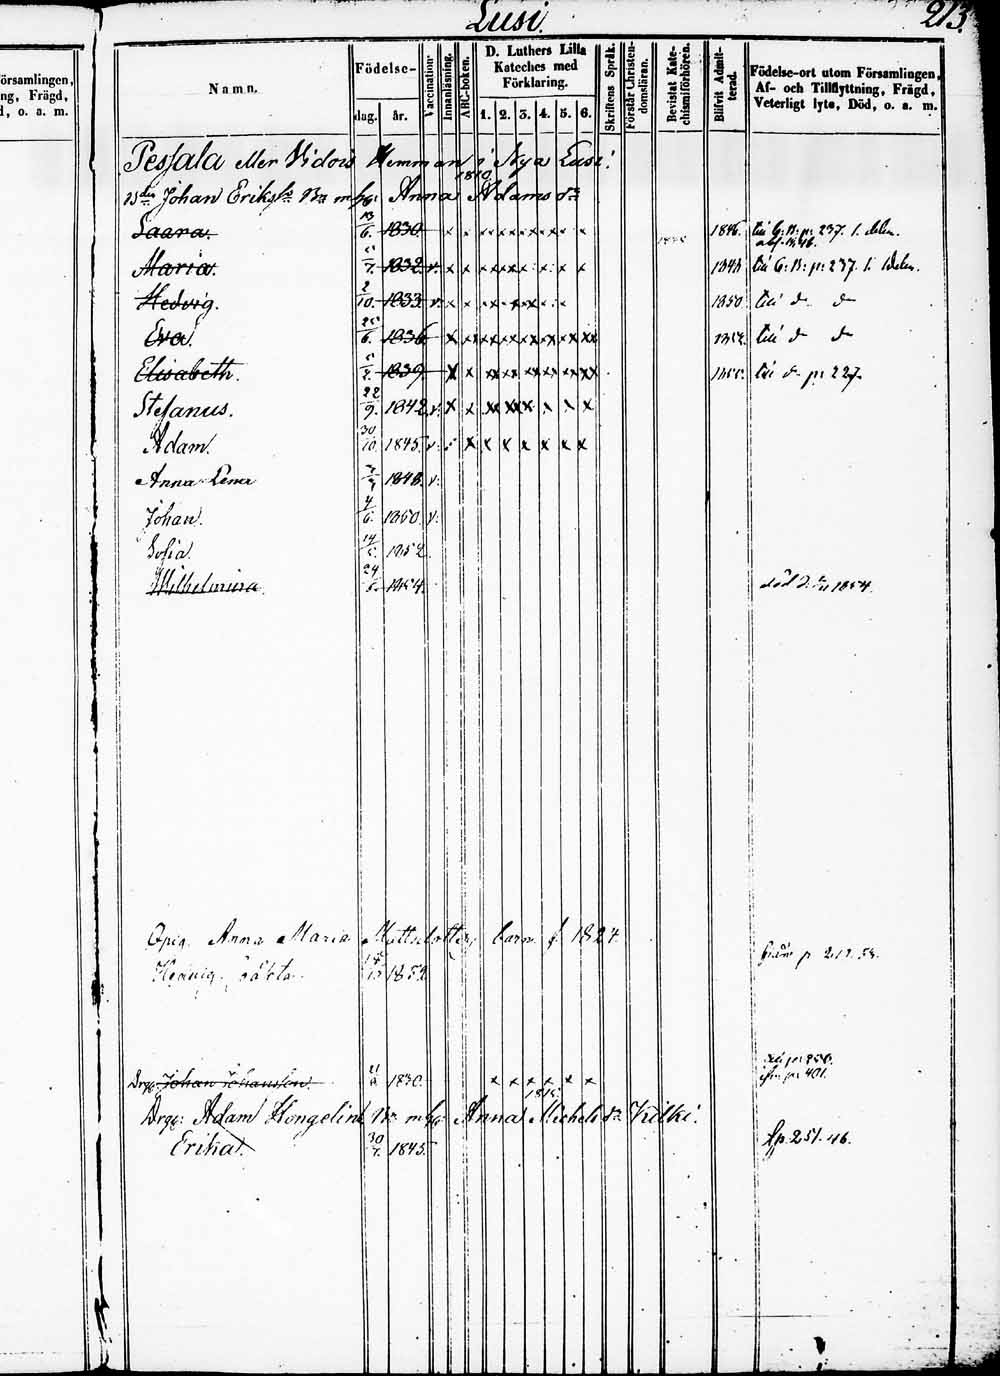 Lusi.
213.
församlingen,
ng, Frägd,
l, o. a. m.
Namn.
Födelse-
dag. år.
Vaccination.
Innanläsning.
ABC-boken.
D. Luthers Lilla
Kateches med
Förklaring.
1. 2. 3. 4. 5. 6.
Skriftens Språk.
Förstår Christen-
domsläran.
Bevistat Kate-
chismiförhören.
Blifvit Admit-
terad.
Födelse-ort utom Församlingen,
Af- och Tillflyttning, Frägd,
Veterligt lyte, Död, o. a. m.
Pessala eller Vidois Hemman i Nya Lusi.
1810
Johan Eriks Anna Adams dr
Saara. 13/6. 1830 x x x x x x x x 1846. till C: B: p: 237. 1. delen.
Maria. 1832. v. x x x x x x x x 1848 till C: B: p: 237. 1. Delen.
Hedvig. 2/10. 1833 v. x x x x x 1850 till d d
Eva 25/6. 1836 x x x x x x x x 1852. till d d
Elisabeth. 1839 x x x x x x x x 1855. till d p: 227
Stefanus. 22/9. 1842 v. x x x x x x x x
Adam. 30/10 1845 v. x x x x x x x
Anna Lena 1848. v.
Johan. 4/6. 1850. v.
Sofia. 14/5. 1852
Wilhelmina 24/5. 1854. död 1854.
Anna Maria Mattsdotters barn f. 1824.
från p 217. 58.
Hedvig 1852
p: 401.
Drge Johan Johansson. 1830. x x x x x x
1815.
Drge: Adam Kongelin Anna Michels dr Kilki.
Erika. 30/7. 1845. p. 251. 46.